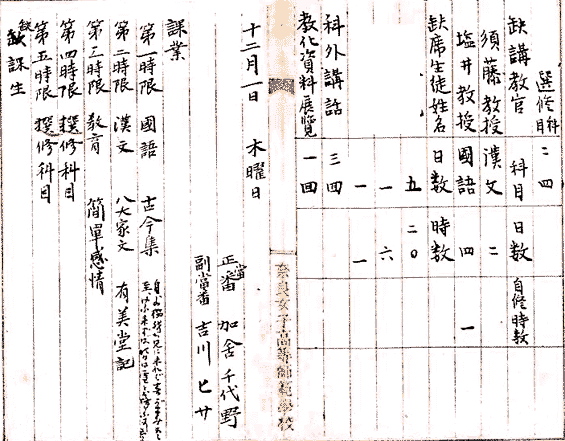 選修科目 二 四
缺講教官 科目 日数 自修時数
須藤教授 漢文 二
塩井教授 國語 四 一
缺席生徒姓名 日数 時数
五 二〇
一 六
一 一
科外講話 三 四
教化資料展覽 一 四
奈良女子高等師範學校
十二月一日 木曜日
正當番 加舎千代野
副當番 吉川ヒサ
課業
第一時限 國語 古今集
第二時限 漢文 八大家文 有美堂記
第三時限 教育 簡單感情
第四時限 撰修科目
第五時限 撰修科目
缺課生